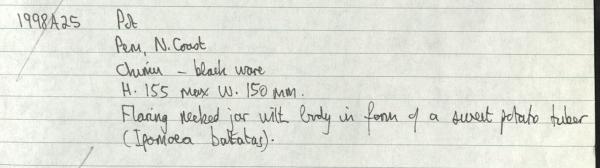 1998A25 Pot
Peru, N. Coast
Chimu - black ware
H. 155 max W. 150 mm.
Flaring necked jar with body in form of a sweet potato tuber
(Ipomoea battatas).